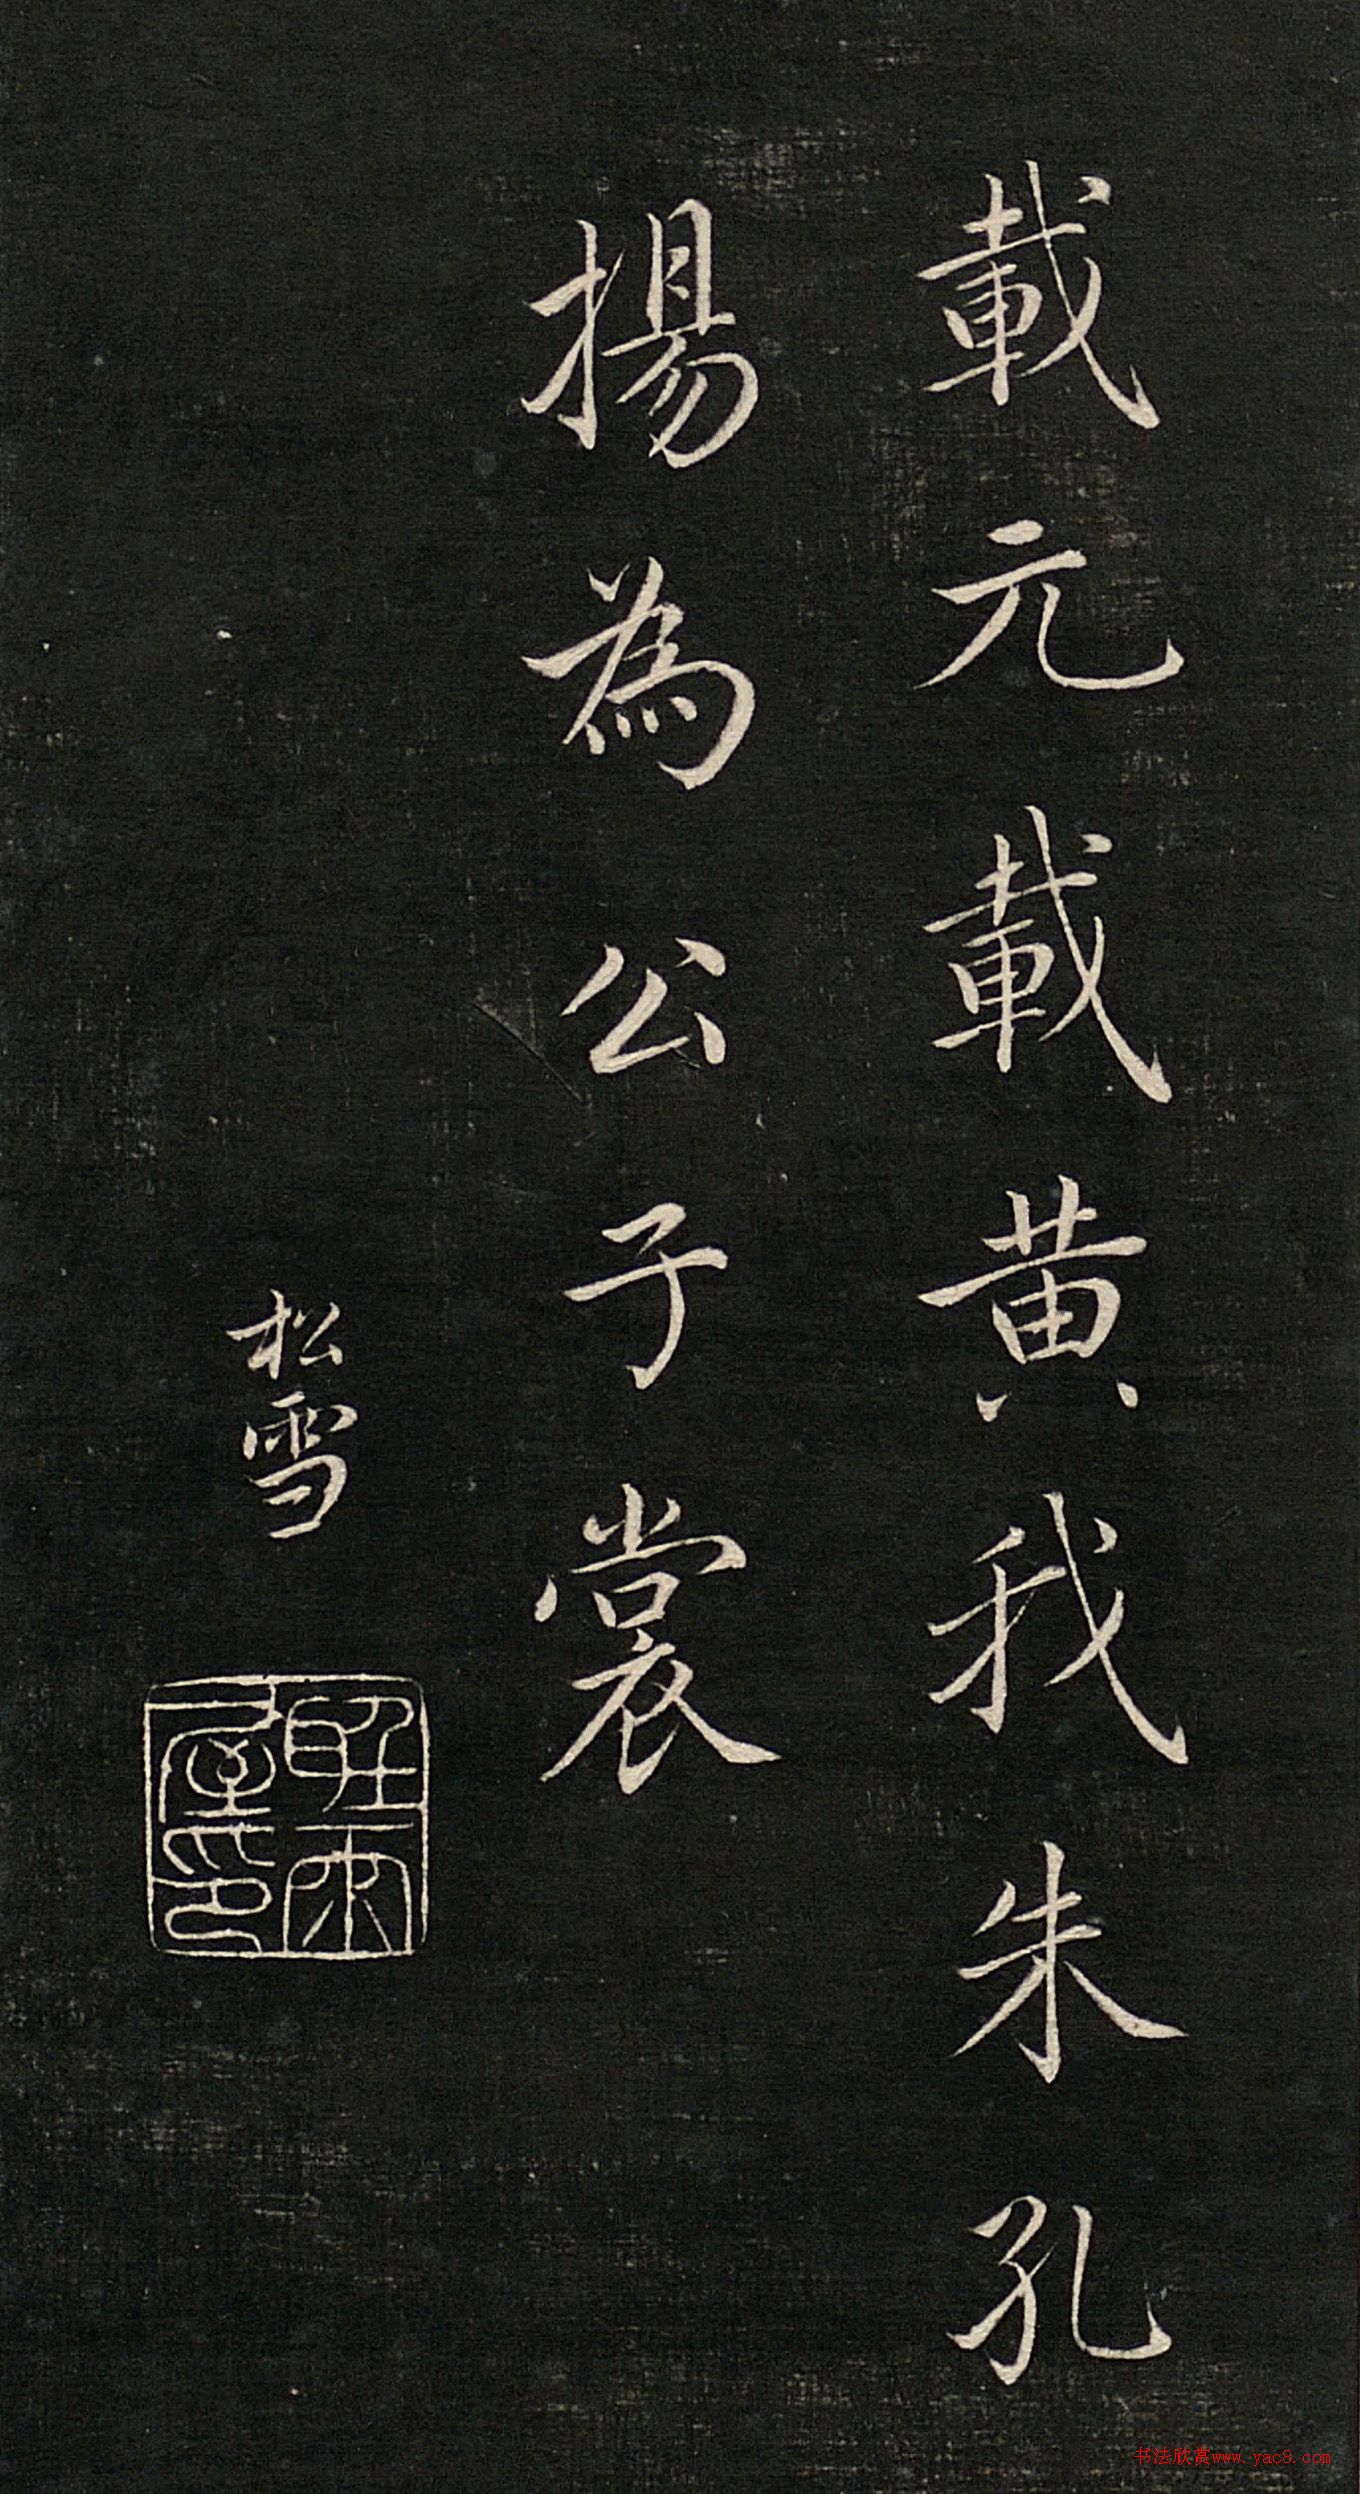 載元載黄我朱孔
揚為公子裳
松雪
书法欣赏www.yac8.com